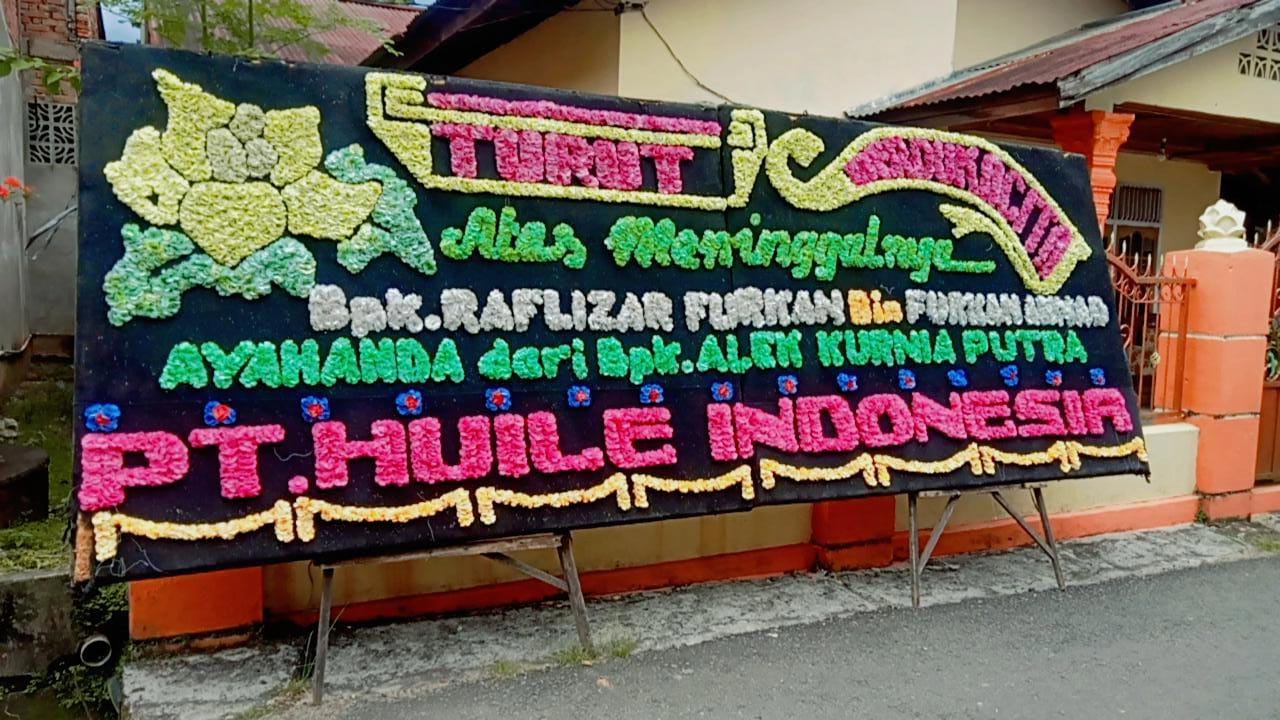 TURUT BERDUKACITA
Atas Meninggalnya
Bpk. RAFLIZAR FURKAN Bin FURKAN
AYAHANDA dari Bpk. ALEK KURNIA PUTRA
PT. HUILE INDONESIA